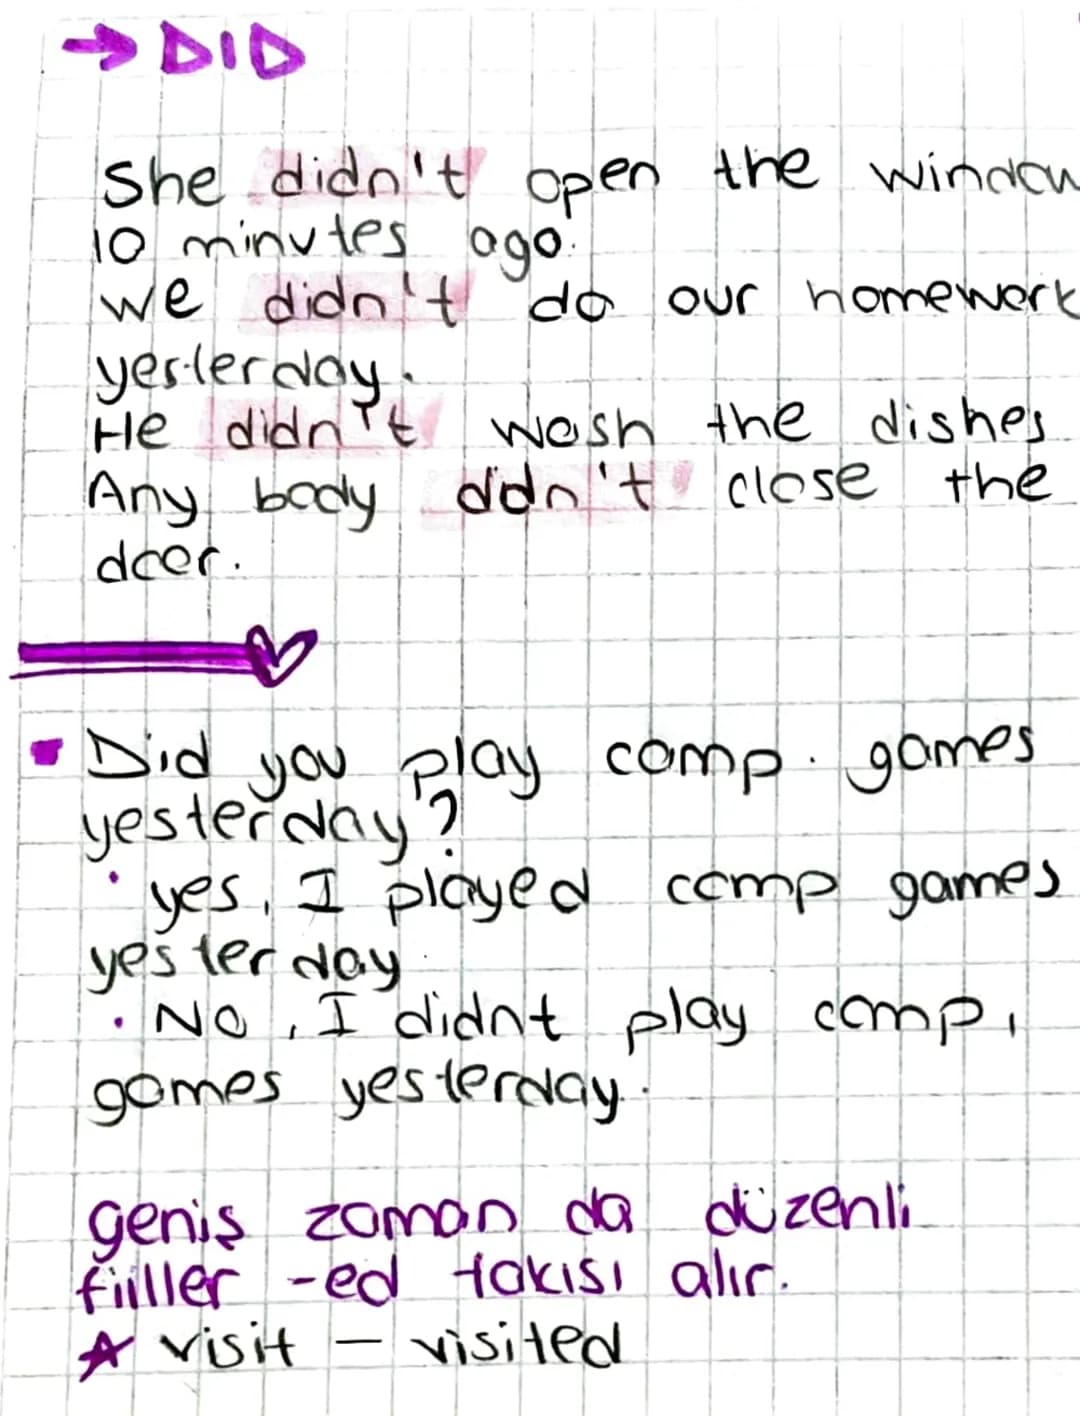 → DID
She didn't open the window
10 minutes ago.
we didn't do our homework
yesterday.
He didn't wash the dishes
Any body didn't close the
door.
Did you play comp. games
yesterday?
• yes, I played comp games
yesterday
• No, I didnt play comp,
games yesterday.
geniş zaman da düzenli
fiiller -ed takısı alır.
☆ visit — visited